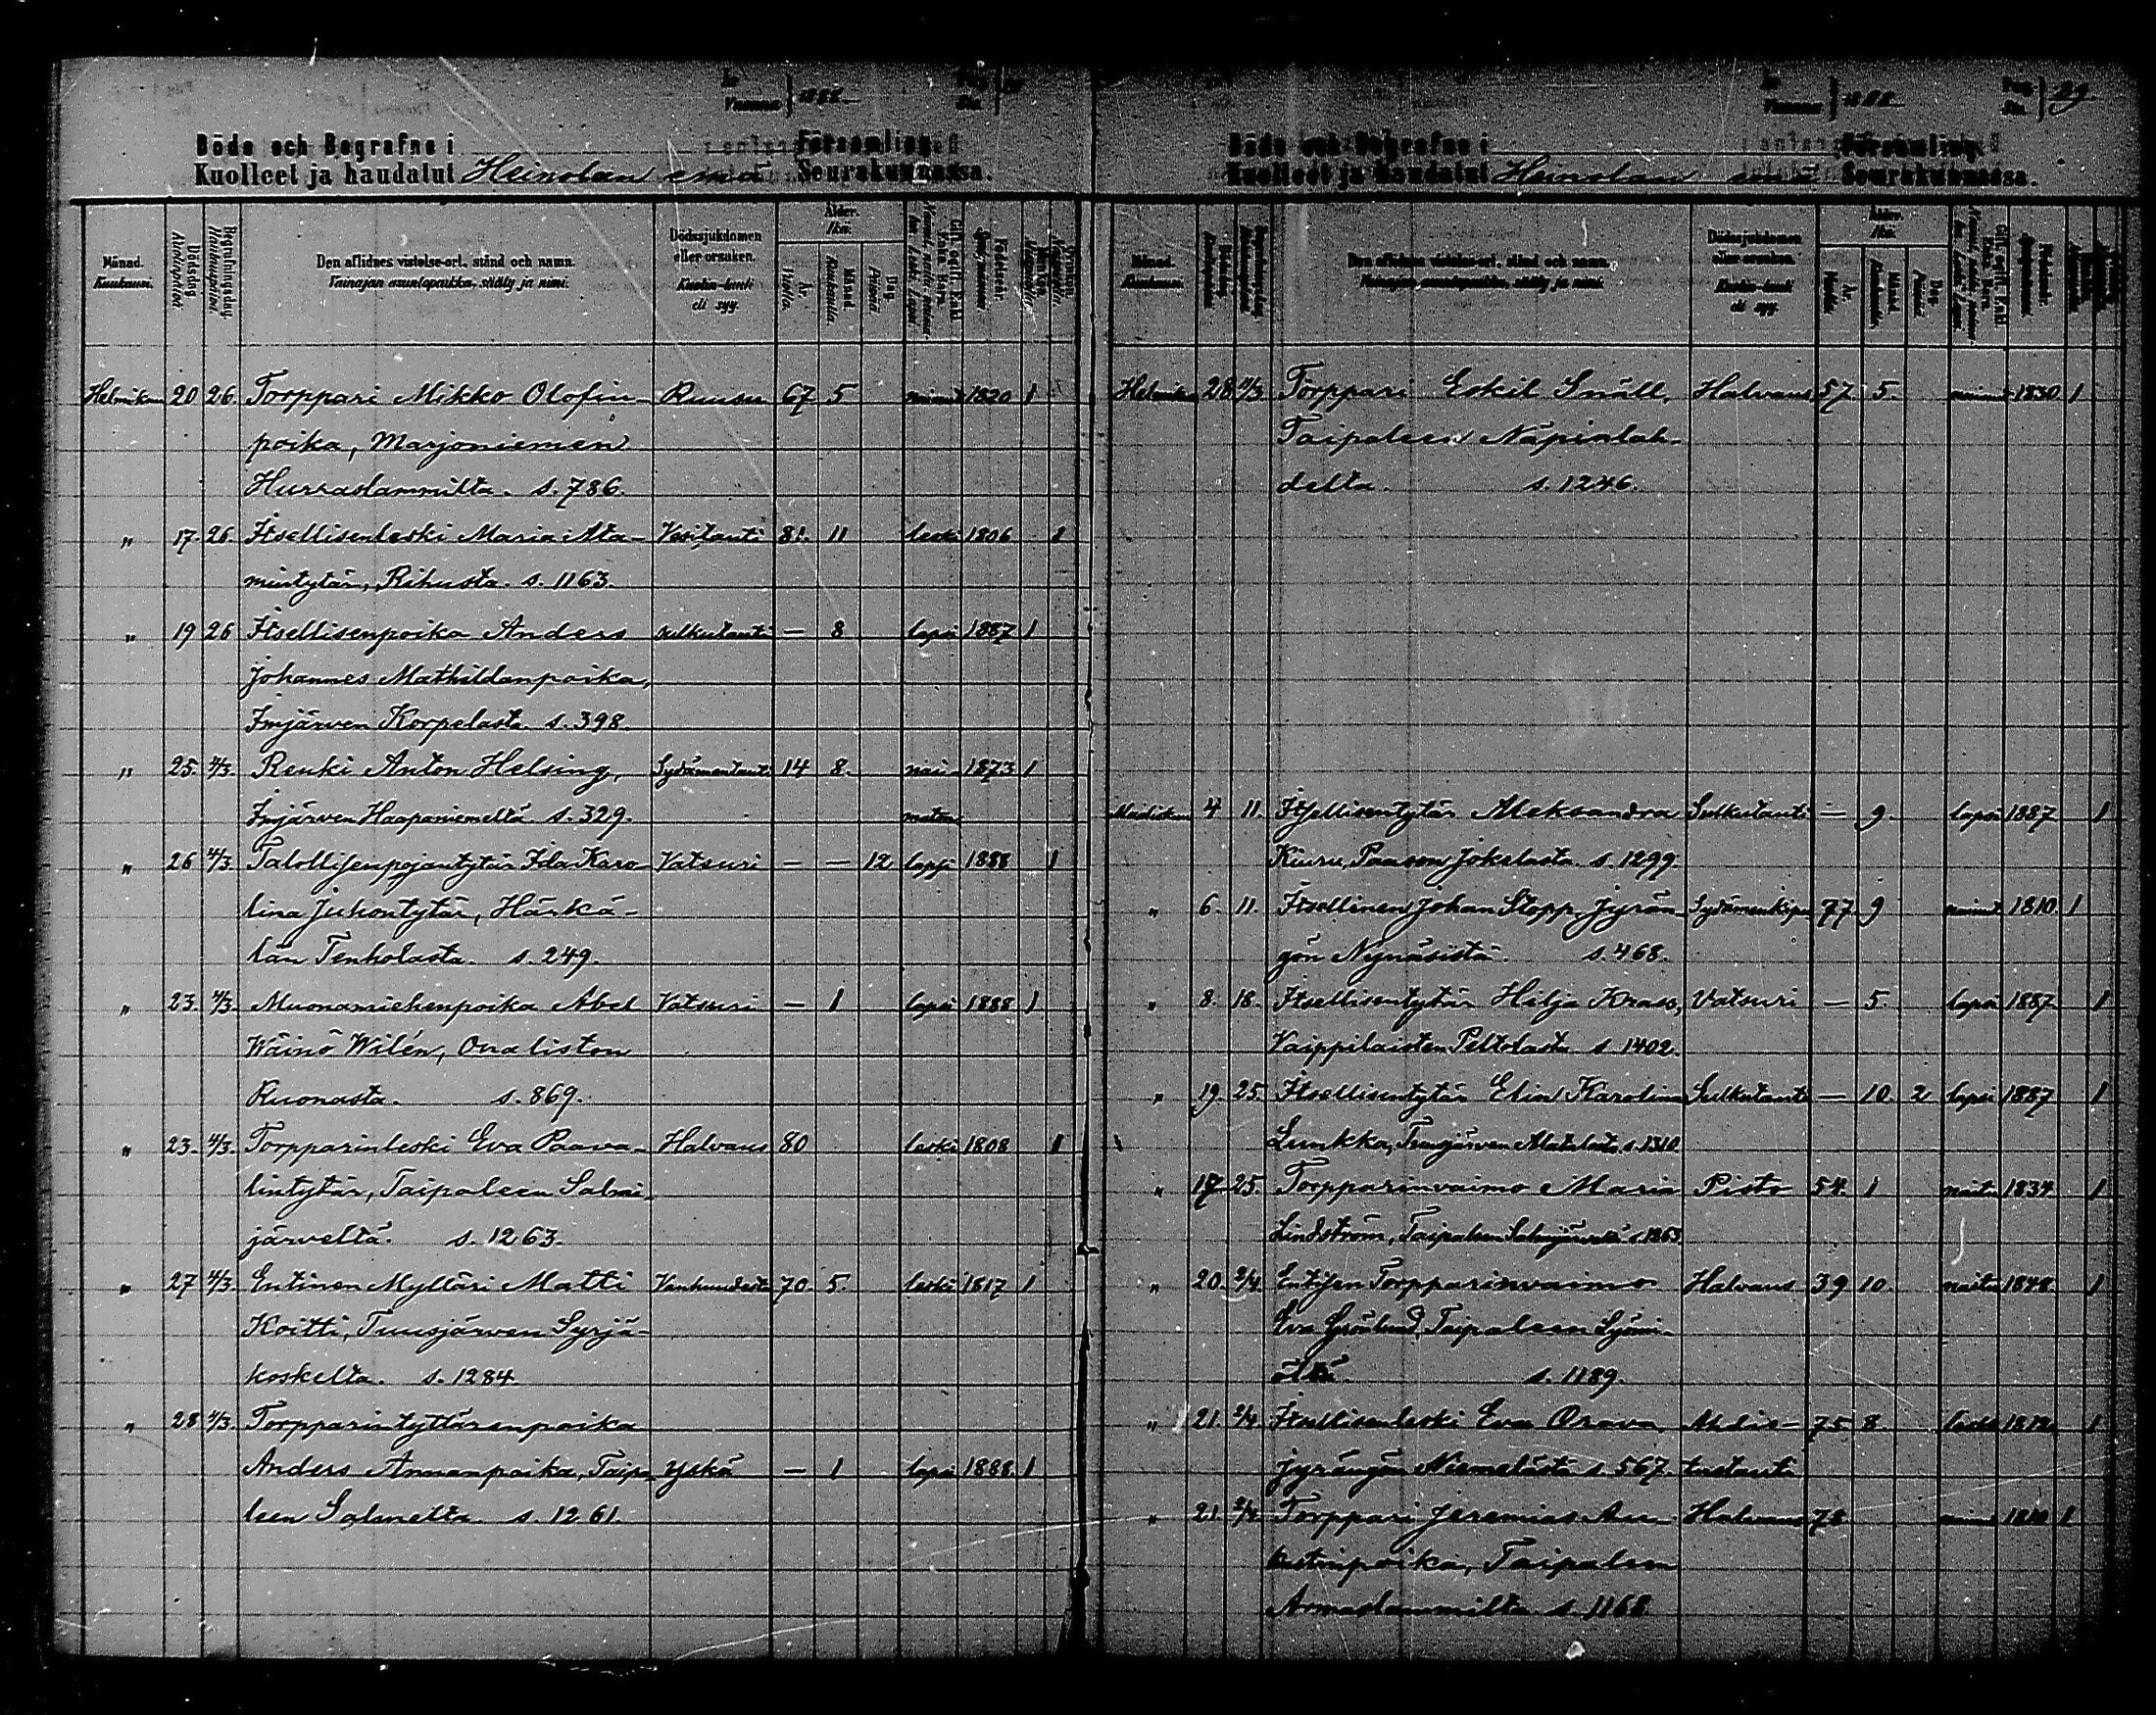 År Vuonna 1888 Pag. Siv.
Döde och Begrafne i Församling
Kuolleet ja haudatut Heinolan emä Seurakunnassa.
Månad. Kuukausi. Dödsdag Kuolinpäivä Begrafningsdag Hautauspäivä Den aflidnes vistelse-ort, stånd och namn. Vainajan asuntopaikka, sääty ja nimi. Dödssjukdomen eller orsaken. Kuolin-tauti eli syy. Ålder. Ikä. År. Vuotta. Månad. Kuukautta. Dag. Päivää Födelseår. Mankön. Qvinkön.
Helmikuu 20 26. Torppari Mikko Olofin- Ruusu 67 5 nainut 1820 1
poika, Marjoniemen
Hurraslammilta. s. 786.
" 17. 26. Itsellisenleski Maria Ata- Vesitauti 81. 11 leski 1806 1
mintytär, Rihusta. s. 1163.
" 19 26 Itsellisenpoika Anders Sulkutauti — 8 lapsi 1887 1
Johannes Mathildanpoika,
Imjärven Korpelasta s. 398.
" 25. 4/3. Renki Anton Helsing, Sydämentauti 14 8. nai- 1873 1
Imjärven Haapaniemeltä s. 329. maton
" 26 4/3. Talollisenpojantytär Ida Karo- Vatsuri — — 12 lapsi 1888 1
lina Juhontytär, Härkä-
län Tenholasta. s. 249.
" 23. 4/3. Muonamiehenpoika Abel Vatsuri — 1 lapsi 1888 1
Wäinö Wilén, Onaliston
Ruonasta. s. 869.
" 23. 4/3. Torpparinleski Eva Paava- Halvaus 80 leski 1808 1
lintytär, Taipaleen Salmi-
järveltä. s. 1263.
" 27 4/3. Entinen Mylläri Matti Vanhuudesta 70. 5. leski 1817 1
Koitti, Tuusjärven Syrjä-
koskelta. s. 1284.
" 28 4/3. Torpparintyttärenpoika
Anders Annanpoika, Taipa- Yskä — 1 lapsi 1888. 1
leen Salmelta s. 1261.
År Vuonna 1888 Pag. Siv. 29
Döde och Begrafne i Församling.
Kuolleet ja haudatut Heinolan emä Seurakunnassa.
Månad. Kuukausi. Den aflidnes vistelse-ort, stånd och namn. Vainajan asuntopaikka, sääty ja nimi. Dödssjukdomen eller orsaken. Kuolin-tauti eli syy. Ålder. Ikä. År. Månad. Dag.
Helmikuu 28 11/3 Torppari Eskil Snäll, Halvaus 57 5. nainut 1830 1
Taipaleen Näpinlah-
delta. s. 1246.
Maaliskuu 4 11. Itsellisentytär Aleksandra Sulkutauti — 9. lapsi 1887 1
Kiuru, Paason Jokelasta s. 1299.
" 6. 11. Itsellinen Johan Stopp, Jyrän- Sydämenkipu 77. 9 nainut 1810 1
gön Nynäsistä. s. 468.
" 8. 18. Itsellisentytär Hilja Knaas, Vatsuri — 5. lapsi 1887 1
Vaippilaisten Peltolasta s. 1402.
" 19. 25. Itsellisentytär Elin Karolina Sulkutauti — 10. 2 lapsi 1887 1
Lunkka, Tuusjärven s. 1310
" 17 25. Torpparinvaimo Maria Pisto 54. 1 naitu 1834 1
Lindström, Taipaleen Salmijärveltä s. 1263
" 20. 2/4. Entisen Torpparinvaimo Halvaus 39 10. naitu 1848 1
Eva Grönlund, Taipaleen
s. 1189.
" 21. 2/4. Itsellisenleski Eva Orava, Ahdis- 75 8. leski 1812 1
Jyrängön Niemelästä s. 567. tustauti
" 21. 2/4. Torppari Jeremias Au- Halvaus 78 1810 1
kustinpoika, Taipaleen
Armaslammilta s. 1168